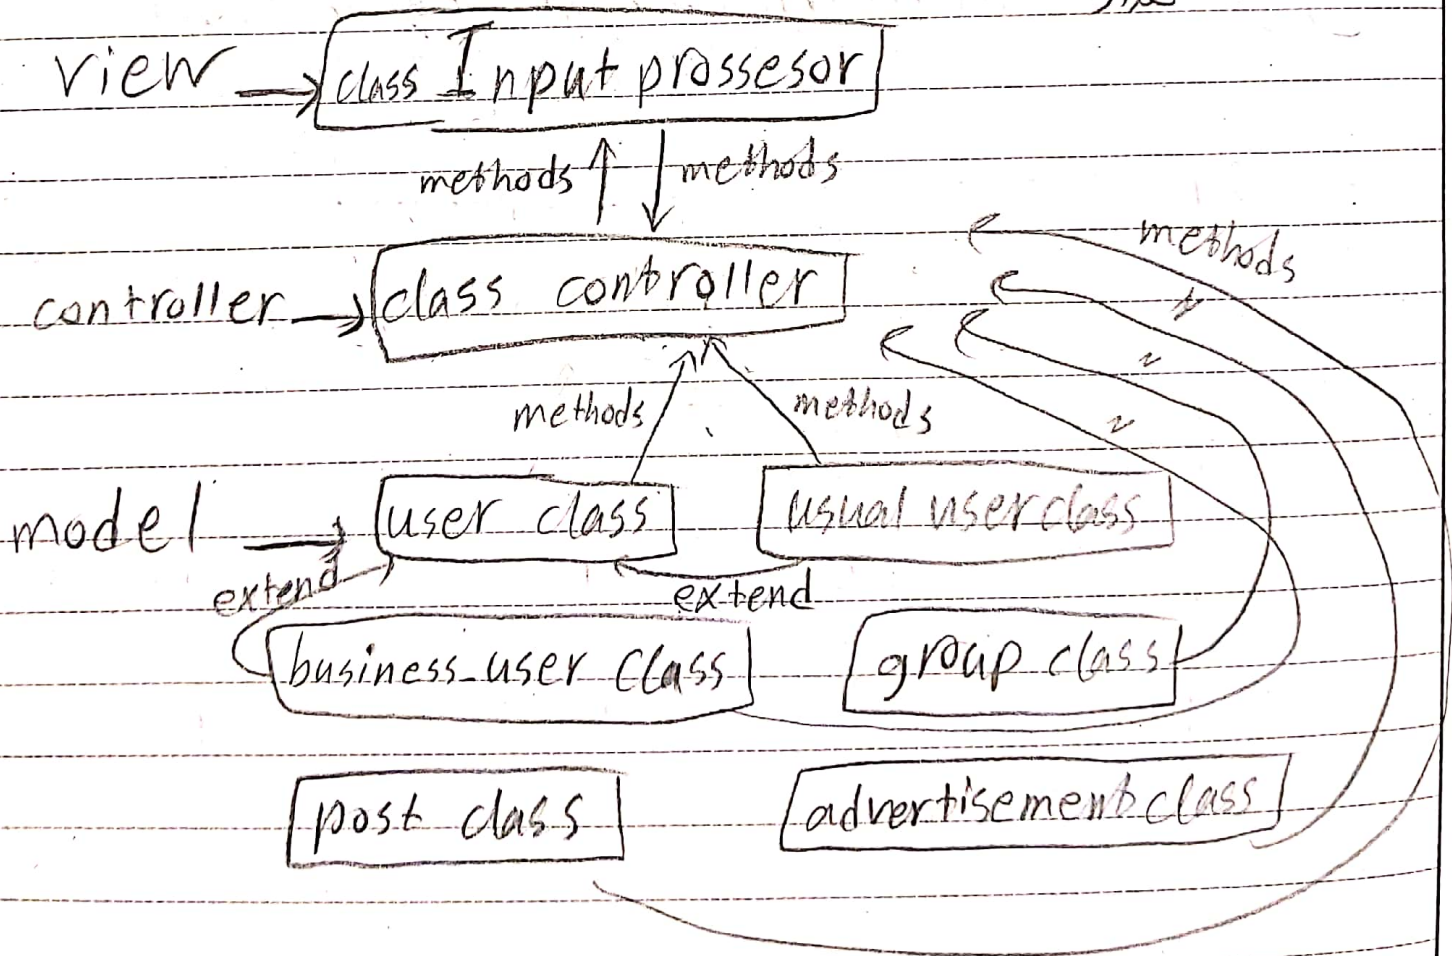 view → class Input prossesor
methods methods
methods
controller → class controller
methods methods
model → user class usual userclass
extend extend
business_user class group class
post class advertisement class